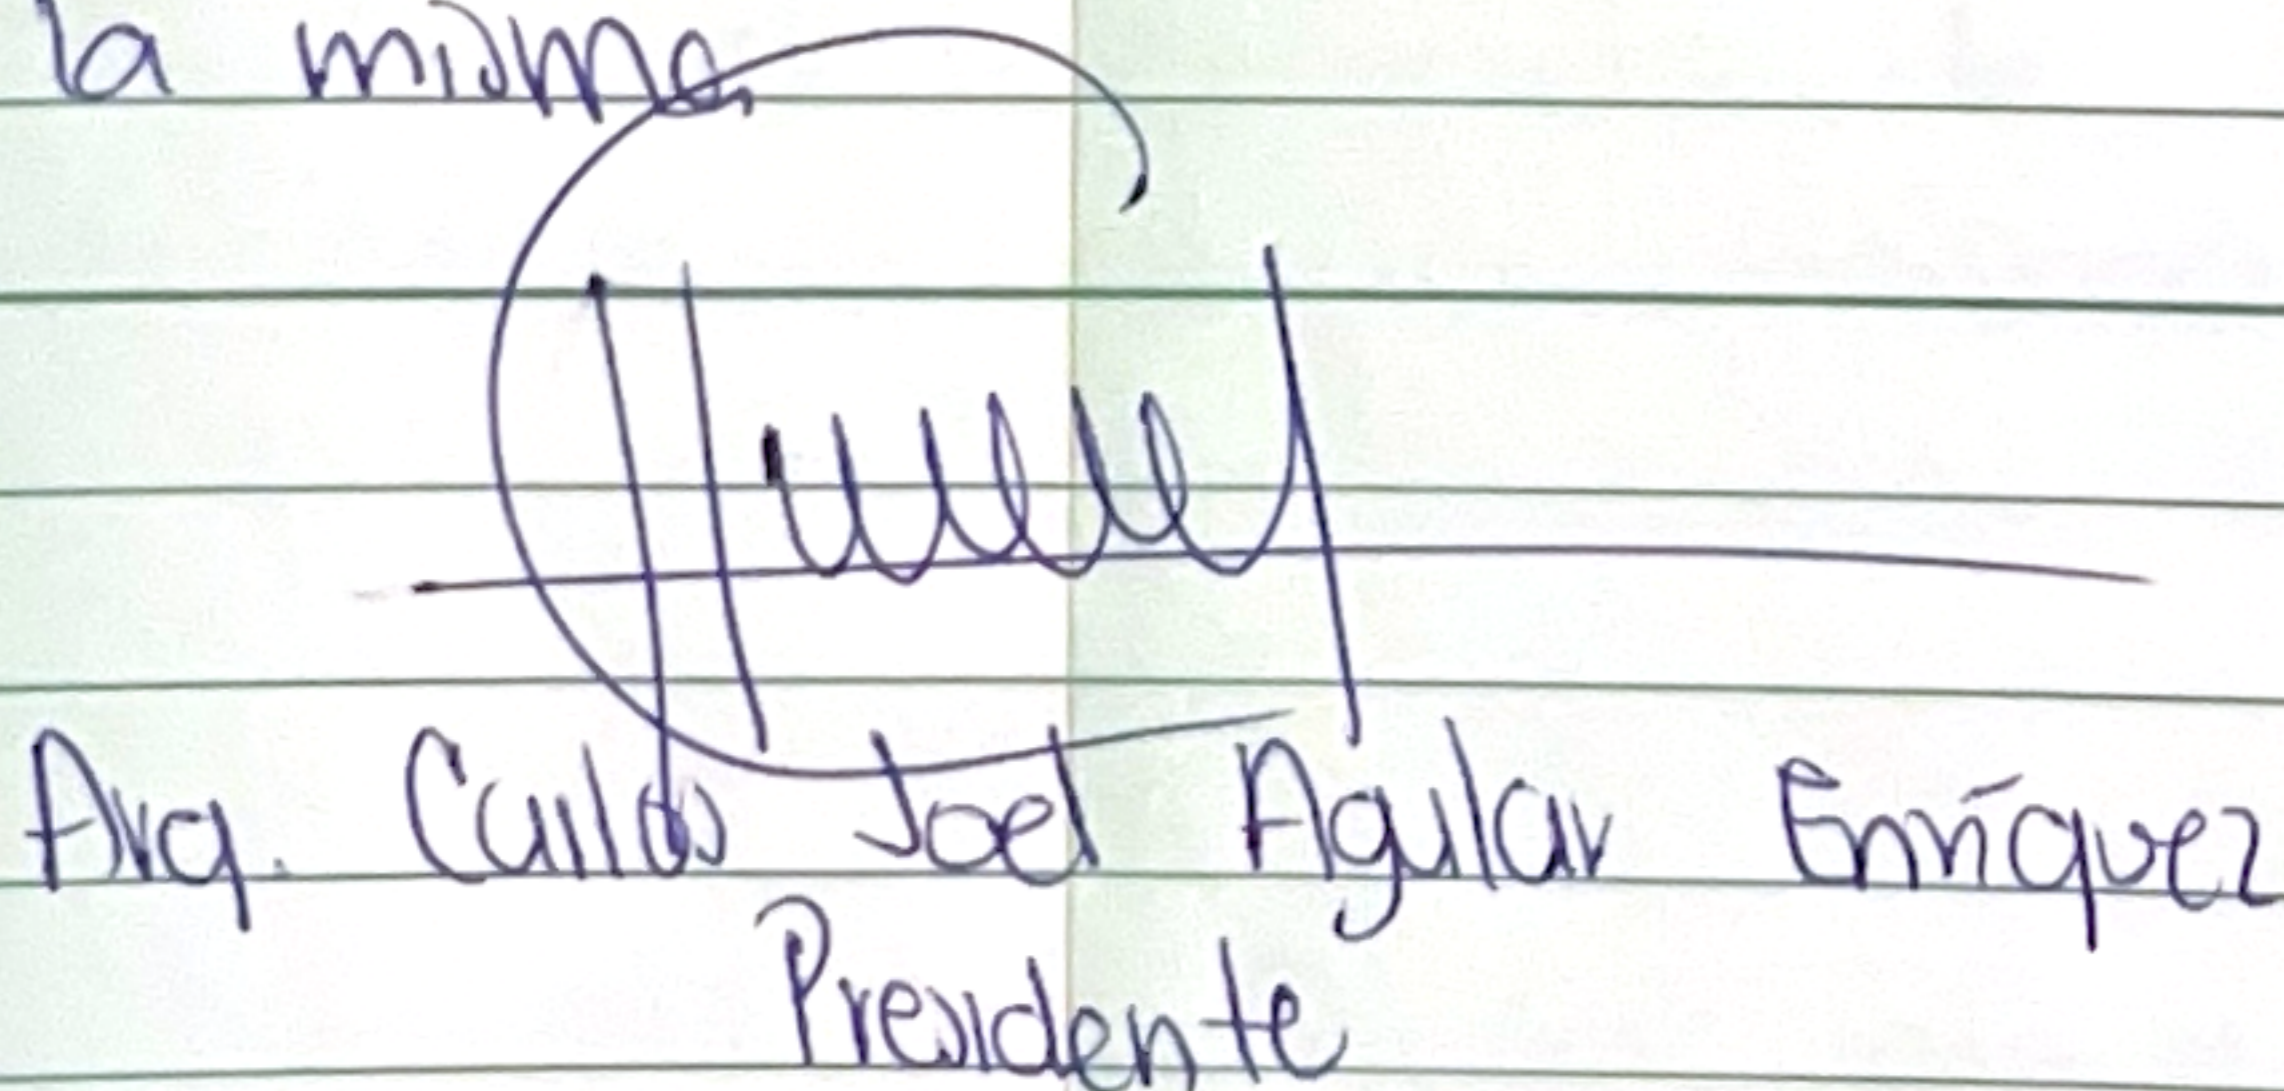 la misma,
Arq. Carlos Joel Aguilar Enríquez
Presidente